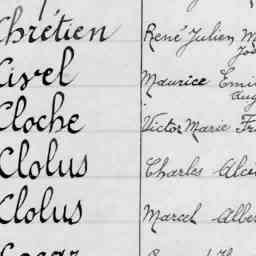 Chrétien René Julien M
Civel Maurice Emi
Aug
Cloche Victor Marie Fr
Clolus Charles Alci
Clolus Marcel Alber